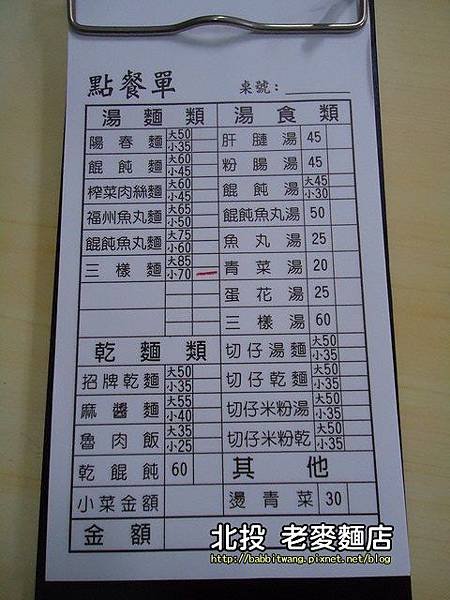 點餐單 桌號:
湯麵類 湯食類
陽春麵 大50 小35 肝腱湯 45
餛飩麵 大60 小45 粉腸湯 45
榨菜肉絲麵 大60 小45 餛飩湯 大45 小30
福州魚丸麵 大65 小50 餛飩魚丸湯 50
餛飩魚丸麵 大75 小60 魚丸湯 25
三樣麵 大85 小70 青菜湯 20
蛋花湯 25
三樣湯 60
乾麵類 切仔湯麵 大50 小35
招牌乾麵 大50 小35 切仔乾麵 大50 小35
麻醬麵 大55 小40 切仔米粉湯 大50 小35
魯肉飯 大35 小25 切仔米粉乾 大50 小35
乾餛飩 60 其他
小菜金額 燙青菜 30
金額
北投 老麥麵店
http://babbitwang.pixnet.net/blog